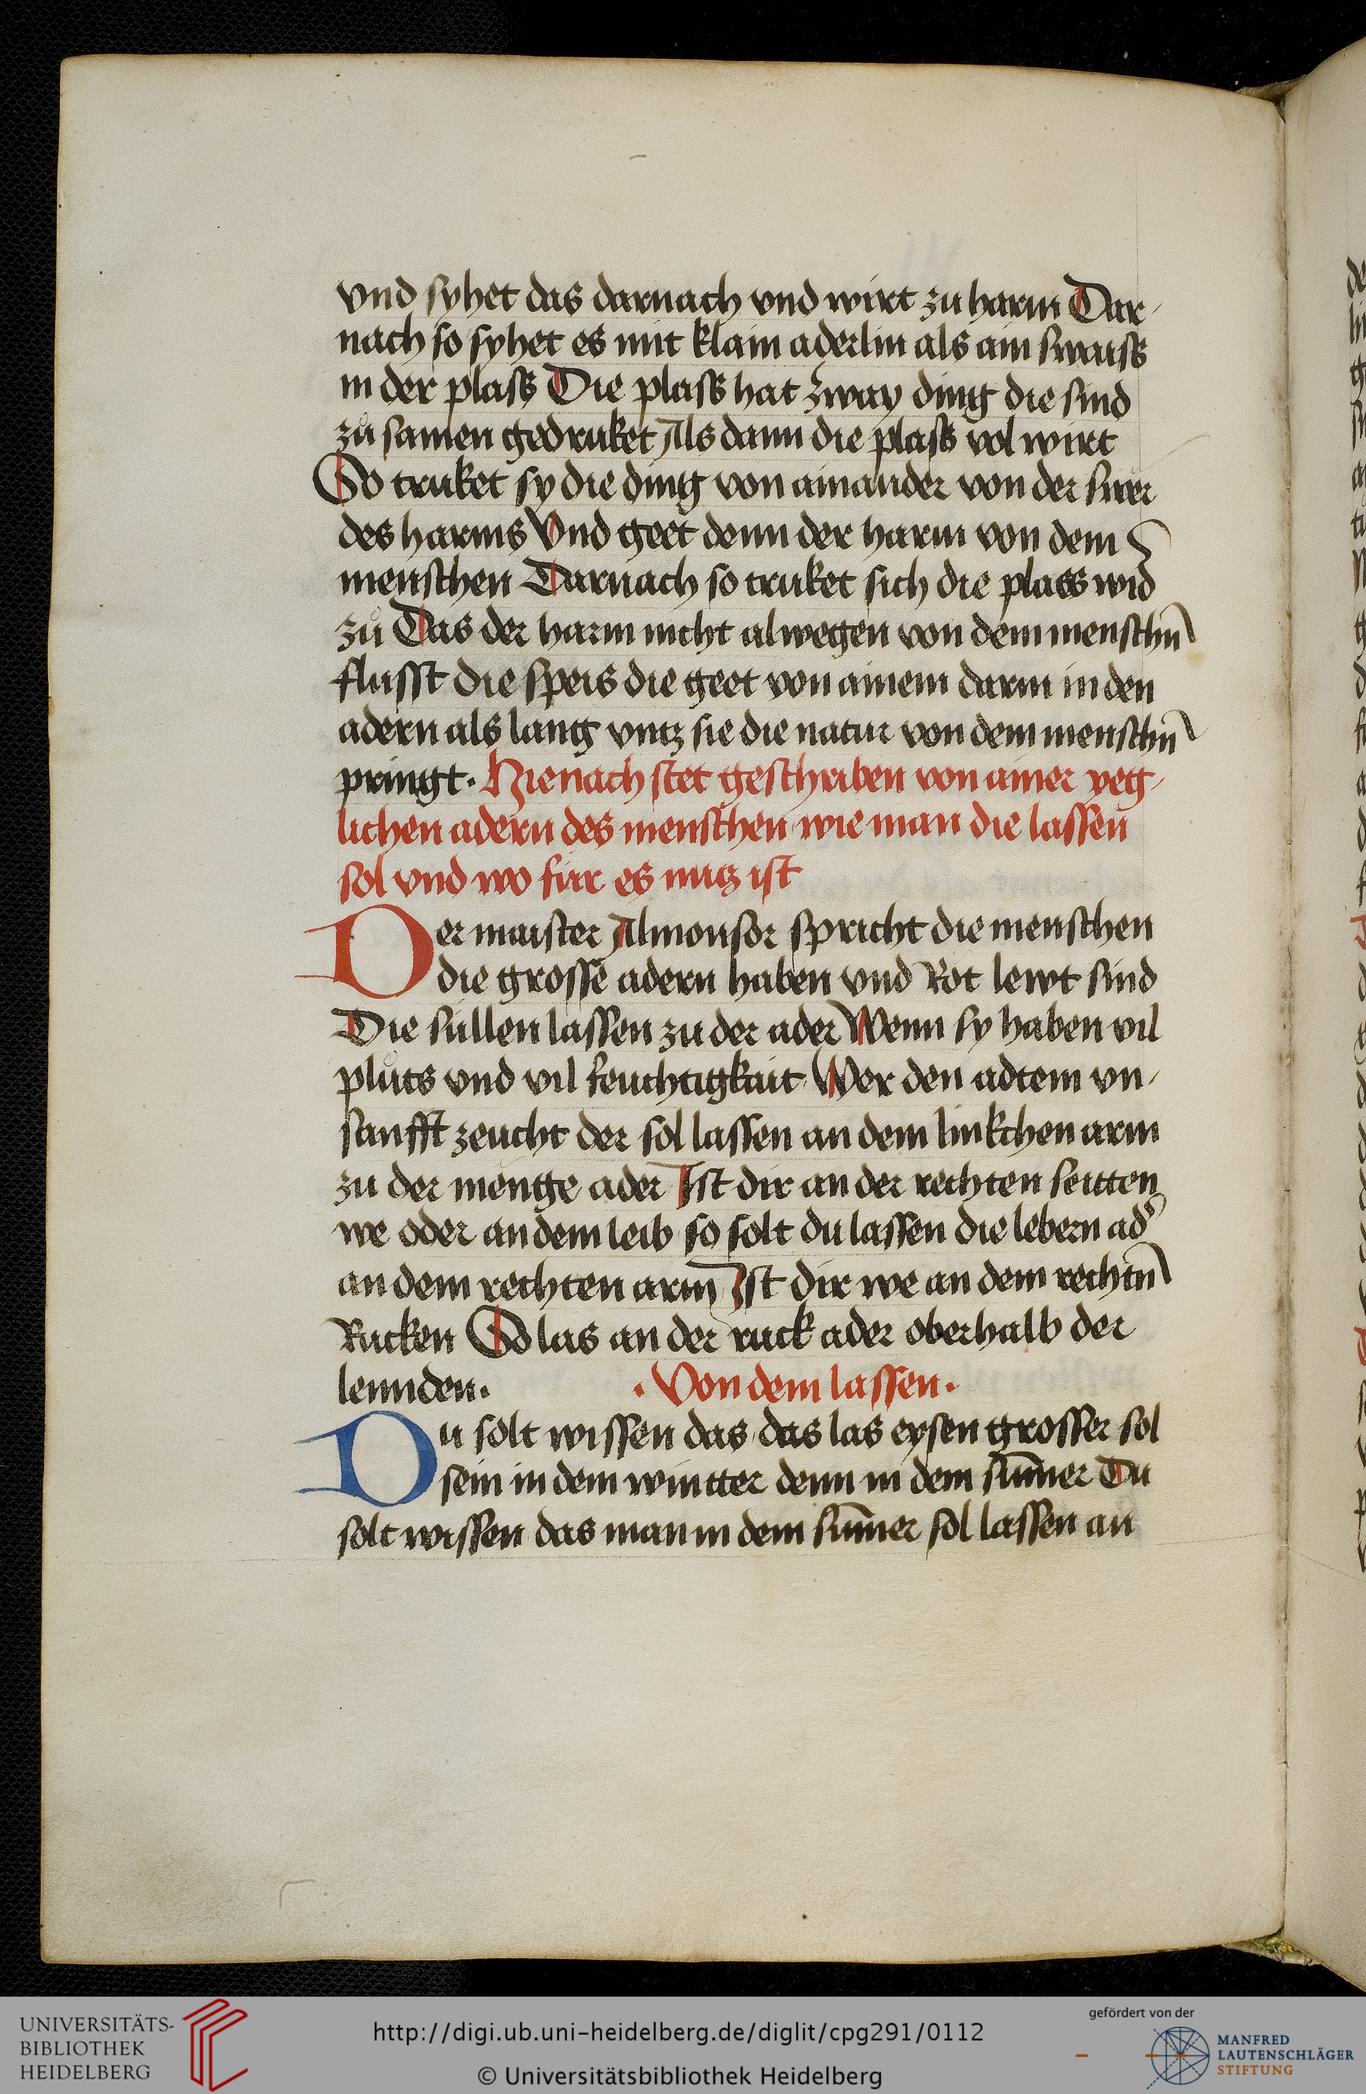 vnd syhet das darnach vnd wirt zu harm Dar-
nach so syhet es mit klain aderlin als ain swaiss
in der plass Die plass hat zway ding die sind
zů samen gedruket Als dann die plass vol wirt
So truket sy die ding von ainander von der swer
des harms Vnd geet denn der harm von dem
menschen Darnach so truket sich die plass wid
zů Das der harm nicht alwegen von dem menschn
flusst die speis die geet von ainem darm in den
adern als lang vntz sie die natur von dem menschn
pringt. Hie nach stet geschriben von ainer yeg-
lichen adern des menschen wie man die lassen
sol vnd wo für es nutz ist
Der maister Almonsor spricht die menschen
die grosse adern haben vnd Rot lewt sind
Die süllen lassen zu der ader Wenn sy haben vil
plůts vnd vil feuchtigkait Wer den adtem vn-
sanfft zeucht der sol lassen an dem linkchen arm
zu der menge ader Ist dir an der rechten seitten
we oder an dem leib so solt du lassen die lebern ad
an dem rechten arm Ist dir we an dem rechtn
Rucken So las an der ruck ader oberhalb der
lennden.
. Von dem lassen .
Du solt wissen das das las eysen grosser sol
sein in dem wintter denn in dem sūmer Du
solt wissen das man in dem sūmer sol lassen an
UNIVERSITÄTS-
BIBLIOTHEK
HEIDELBERG
http://digi.ub.uni-heidelberg.de/diglit/cpg291/0112
© Universitätsbibliothek Heidelberg
gefördert von der
MANFRED
LAUTENSCHLÄGER
STIFTUNG